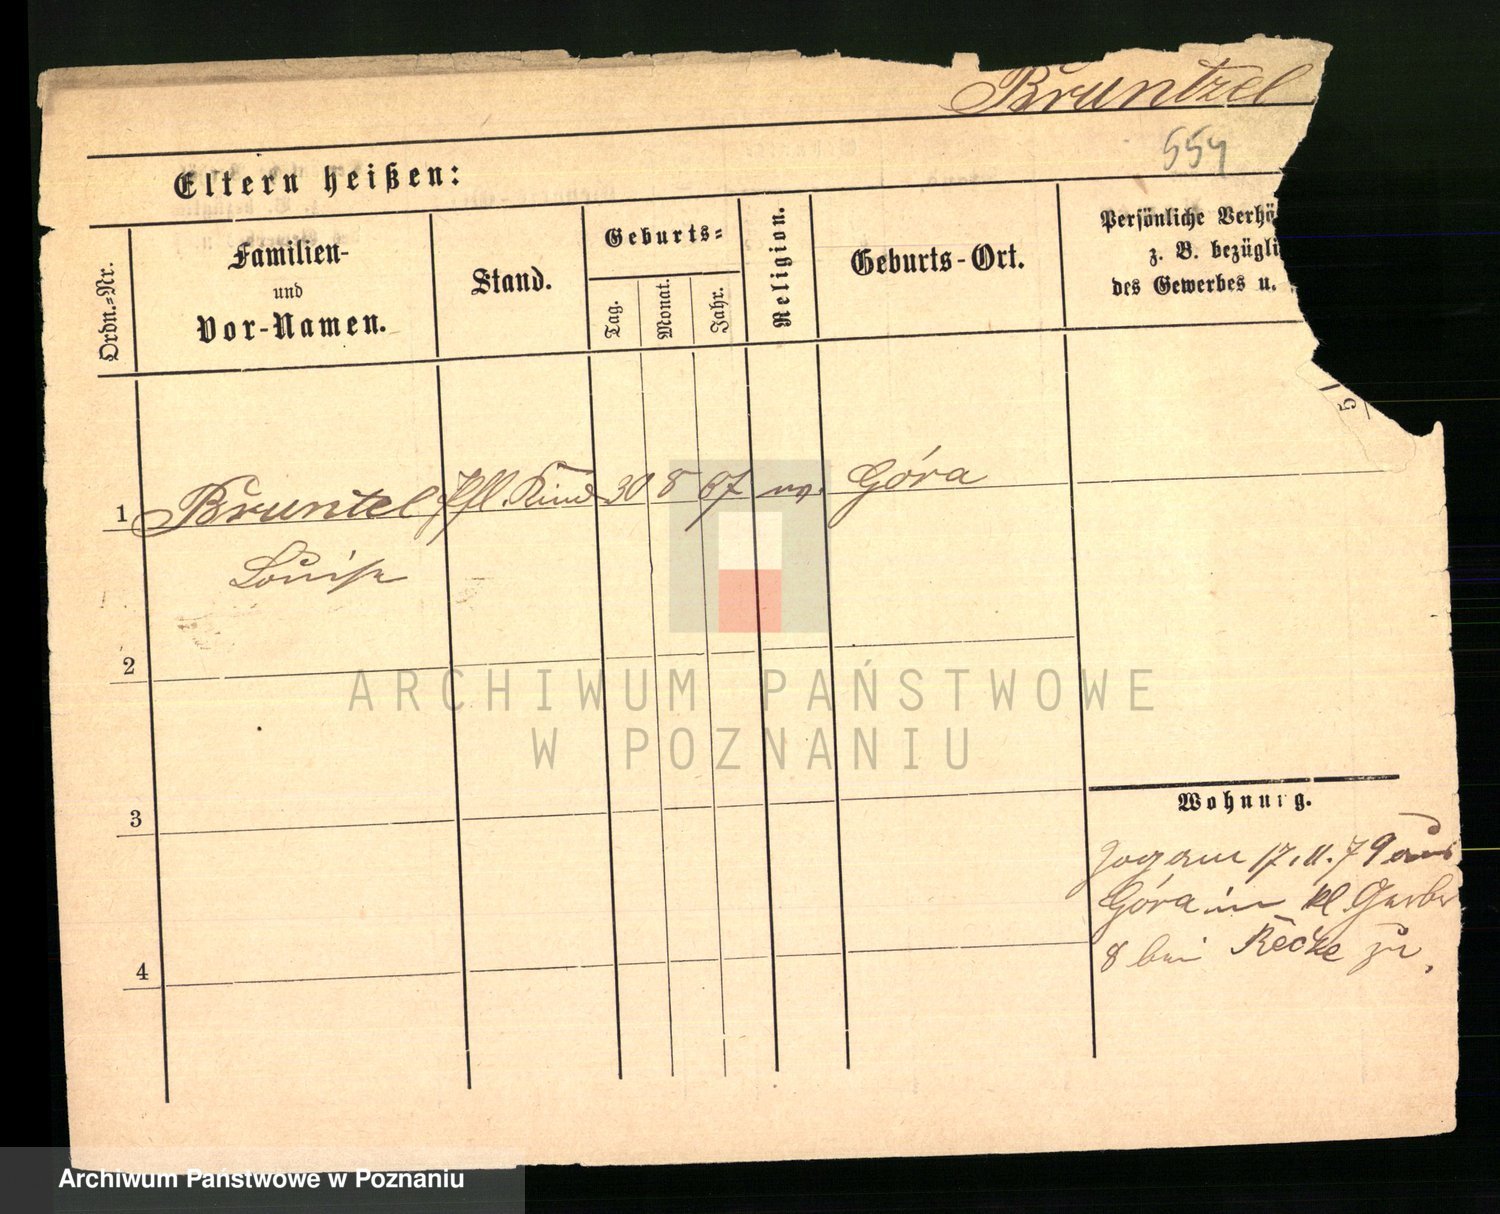 Bruntzel
554
Eltern heißen:
Ordn.-Nr.
Familien-
und
Vor-Namen.
Stand.
Geburts-
Tag.
Monat.
Jahr.
Religion.
Geburts-Ort.
Persönliche Verhä
z. B. bezügli
des Gewerbes u.
5
1 Bruntel Pfl. Kind 30 8 67 ev. Góra
Louise
2
3
4
Wohnung.
Zog am 17.11.79 aus
Góra in kl. Gerber
8 bei Recke zu.
ARCHIWUM PAŃSTWOWE
W POZNANIU
Archiwum Państwowe w Poznaniu